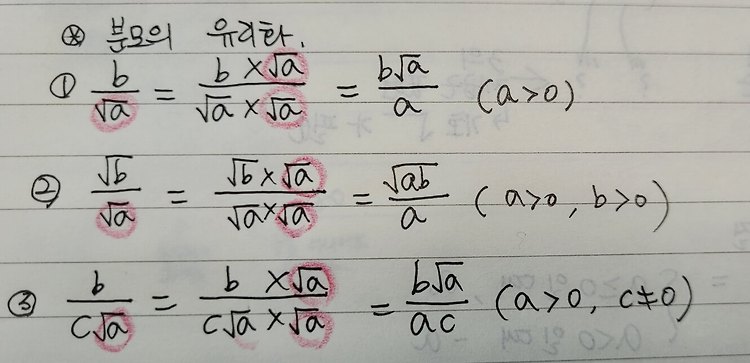 ※ 분모의 유리화.
① b/√a = b×√a/√a×√a = b√a/a (a>0)
② √b/√a = √b×√a/√a×√a = √ab/a (a>0, b>0)
③ b/c√a = b×√a/c√a×√a = b√a/ac (a>0, c≠0)